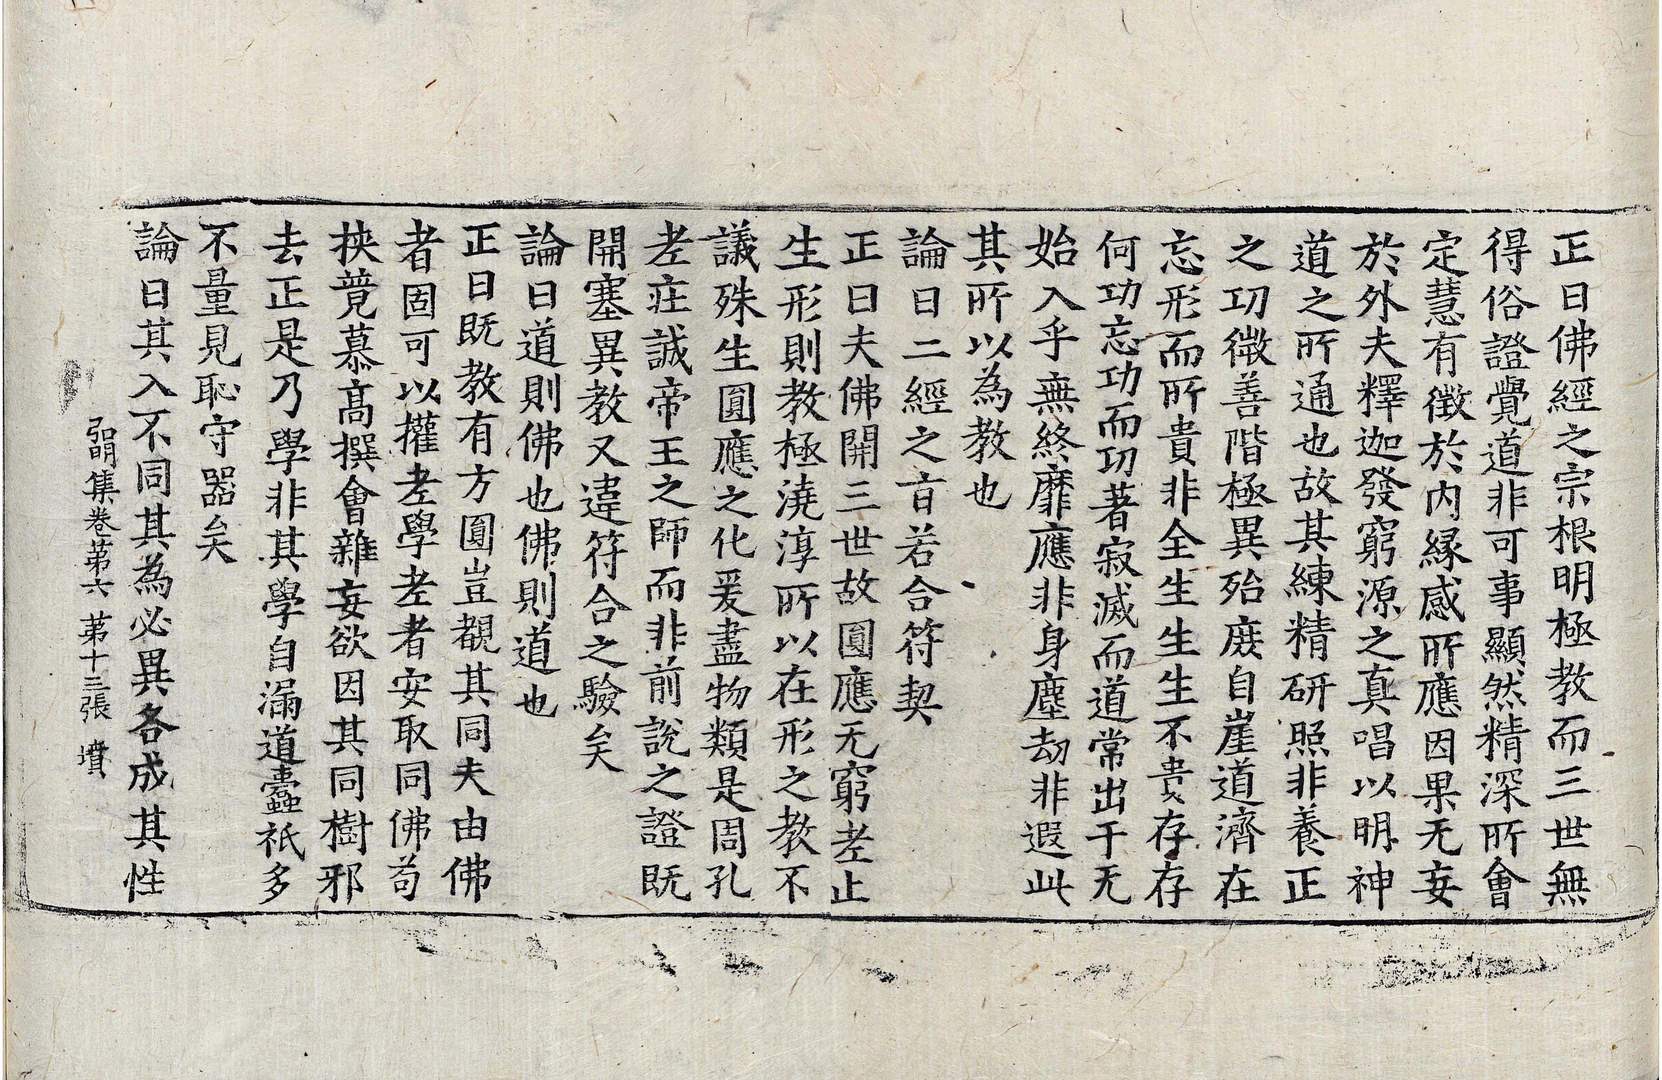 正曰佛經之宗根明極教而三世無
得俗證覺道非可事顯然精深所會
定慧有徵於内縁感所應因果无妄
於外夫釋迦發窮源之真唱以明神
道之所通也故其練精研照非養正
之功微善階極異殆庶自崖道濟在
忘形而所貴非全生生生不貴存存
何功忘功而功著寂滅而道常出于无
始入乎無終靡應非身塵劫非遐此
其所以為教也
論曰二經之旨若合符契
正曰夫佛開三世故圓應无窮老止
生形則教極澆淳所以在形之教不
議殊生圓應之化爰盡物類是周孔
老莊誠帝王之師而非前說之證既
開塞異教又違符合之驗矣
論曰道則佛也佛則道也
正曰既教有方圓豈覩其同夫由佛
者固可以權老學老者安取同佛苟
挾競慕髙撰會雜妄欲因其同樹邪
去正是乃學非其學自漏道蠹祇多
不量見恥守器矣
論曰其入不同其為必異各成其性
弘明集卷第六 第十三張 墳